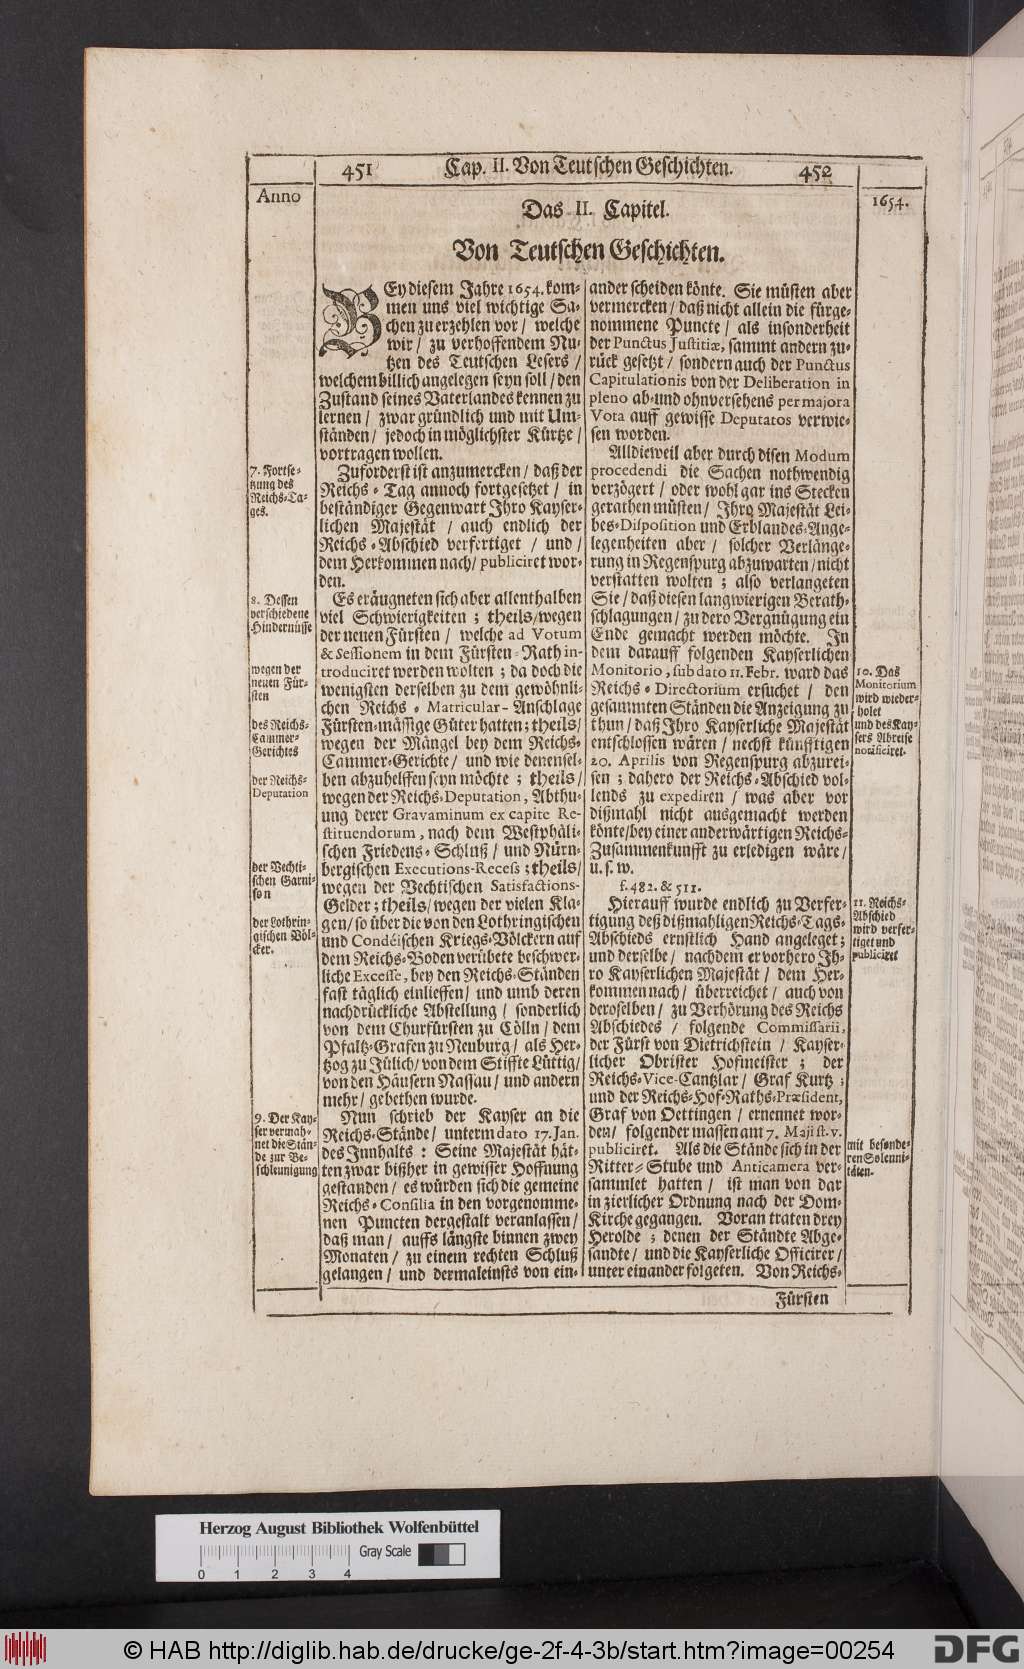 451
Cap. II. Von Teutschen Geschichten.
452
Anno
1654.
Das II. Capitel.
Von Teutschen Geschichten.
BEy diesem Jahre 1654. kom-
men uns viel wichtige Sa-
chen zu erzehlen vor / welche
wir / zu verhoffendem Nu-
tzen des Teutschen Lesers /
welchem billich angelegen seyn soll / den
Zustand seines Vaterlandes kennen zu
lernen / zwar gründlich und mit Um-
ständen / jedoch in möglichster Kürtze /
vortragen wollen.
7. Fortse-
tzung des
Reichs-Ta-
ges.
Zuforderst ist anzumercken / daß der
Reichs-Tag annoch fortgesetzet / in
beständiger Gegenwart Ihro Kayser-
lichen Majestät / auch endlich der
Reichs-Abschied verfertiget / und /
dem Herkommen nach / publiciret wor-
den.
8. Dessen
verschiedene
Hindernüsse
wegen der
neuen Für-
sten
des Reichs-
Cammer-
Gerichtes
der Reichs-
Deputation
der Vechti-
schen Garni-
son
der Lothrin-
gischen Völ-
cker.
Es eräugneten sich aber allenthalben
viel Schwierigkeiten ; theils / wegen
der neuen Fürsten / welche ad Votum
& Sessionem in dem Fürsten-Rath in-
troduciret werden wolten ; da doch die
wenigsten derselben zu dem gewöhnli-
chen Reichs-Matricular-Anschlage
Fürsten-mässige Güter hatten ; theils /
wegen der Mängel bey dem Reichs-
Cammer-Gerichte / und wie denensel-
ben abzuhelffen seyn möchte ; theils /
wegen der Reichs-Deputation, Abthu-
ung derer Gravaminum ex capite Re-
stituendorum, nach dem Westphäli-
schen Friedens-Schluß / und Nürn-
bergischen Executions-Recess ; theils /
wegen der Vechtischen Satisfactions-
Gelder ; theils / wegen der vielen Kla-
gen / so über die von den Lothringischen
und Condéischen Kriegs-Völckern auf
dem Reichs-Boden verübete beschwer-
liche Excesse, bey den Reichs-Ständen
fast täglich einlieffen / und umb deren
nachdrückliche Abstellung / sonderlich
von dem Churfürsten zu Cölln / dem
Pfaltz-Grafen zu Neuburg / als Her-
tzog zu Jülich / von dem Stiffte Lüttig /
von den Häusern Nassau / und andern
mehr / gebethen wurde.
9. Der Kay-
ser vermah-
net die Stän-
de zur Be-
schleunigung
Nun schrieb der Kayser an die
Reichs-Stände / unterm dato 17. Jan.
des Innhalts : Seine Majestät hät-
ten zwar bißher in gewisser Hoffnung
gestanden / es würden sich die gemeine
Reichs-Consilia in den vorgenomme-
nen Puncten dergestalt veranlassen /
daß man / auffs längste binnen zwey
Monaten / zu einem rechten Schluß
gelangen / und dermaleinsts von ein-
ander scheiden könte. Sie müsten aber
vermercken / daß nicht allein die fürge-
nommene Puncte / als insonderheit
der Punctus Justitiæ, sammt andern zu-
rück gesetzt / sondern auch der Punctus
Capitulationis von der Deliberation in
pleno ab- und ohnversehens per majora
Vota auff gewisse Deputatos verwie-
sen worden.
Alldieweil aber durch disen Modum
procedendi die Sachen nothwendig
verzögert / oder wohl gar ins Stecken
gerathen müsten / Ihro Majestät Lei-
bes-Disposition und Erblandes-Ange-
legenheiten aber / solcher Verlänge-
rung in Regenspurg abzuwarten / nicht
verstatten wolten ; also verlangeten
Sie / daß diesen langwierigen Berath-
schlagungen / zu dero Vergnügung ein
Ende gemacht werden möchte. In
dem darauff folgenden Kayserlichen
Monitorio, sub dato 11. Febr. ward das
Reichs-Directorium ersuchet / den
gesammten Ständen die Anzeigung zu
thun / daß Ihro Kayserliche Majestät
entschlossen wären / nechst künfftigen
20. Aprilis von Regenspurg abzurei-
sen ; dahero der Reichs-Abschied vol-
lends zu expediren / was aber vor
dißmahl nicht ausgemacht werden
könte / bey einer anderwärtigen Reichs-
Zusammenkunfft zu erledigen wäre /
u. s. w.
f. 482. & 511.
10. Das
Monitorium
wird wieder-
holet
und des Kay-
sers Abreise
notificiret.
Hierauff wurde endlich zu Verfer-
tigung deß dißmahligen Reichs-Tags-
Abschieds ernstlich Hand angeleget ;
und derselbe / nachdem er vorhero Ih-
ro Kayserlichen Majestät / dem Her-
kommen nach / überreichet / auch von
deroselben / zu Verhörung des Reichs
Abschiedes / folgende Commissarii,
der Fürst von Dietrichstein / Kayser-
licher Obrister Hofmeister ; der
Reichs-Vice-Cantzlar / Graf Kurtz ;
und der Reichs-Hof-Raths-Præsident,
Graf von Oettingen / ernennet wor-
den / folgender massen am 7. Maji st. v.
publiciret. Als die Stände sich in der
Ritter-Stube und Anticamera ver-
sammlet hatten / ist man von dar
in zierlicher Ordnung nach der Dom-
Kirche gegangen. Voran traten drey
Herolde ; denen der Ständte Abge-
sandte / und die Kayserliche Officirer /
unter einander folgeten. Von Reichs-
11. Reichs-
Abschied
wird verfer-
tiget und
publiciret
mit besonde-
ren Solenni-
täten.
Fürsten
Herzog August Bibliothek Wolfenbüttel
Gray Scale
0 1 2 3 4
© HAB http://diglib.hab.de/drucke/ge-2f-4-3b/start.htm?image=00254
DFG